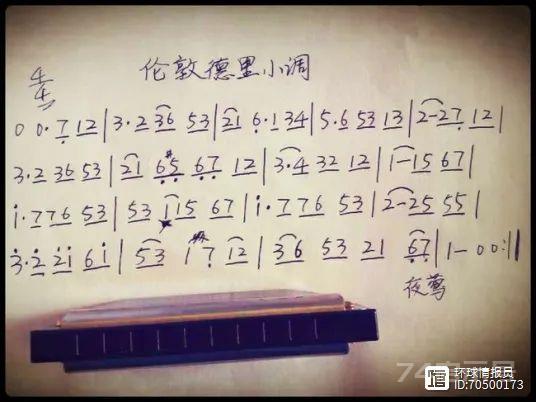 4/4 伦敦德里小调
0 0·7 12 | 3·2 36 53 | 21 6·1 34 | 5·6 53 13 | 2-27 12 |
3·2 36 53 | 21 #65 67 12 | 3·4 32 12 | 1-15 67 |
i·776 53 | 53 115 67 | i·776 53 | 2-25 55 |
3·2 21 61 | 53 17 12 | 36 53 21 67 | 1- 00:||
夜莺
环球情报员
ID:70500173